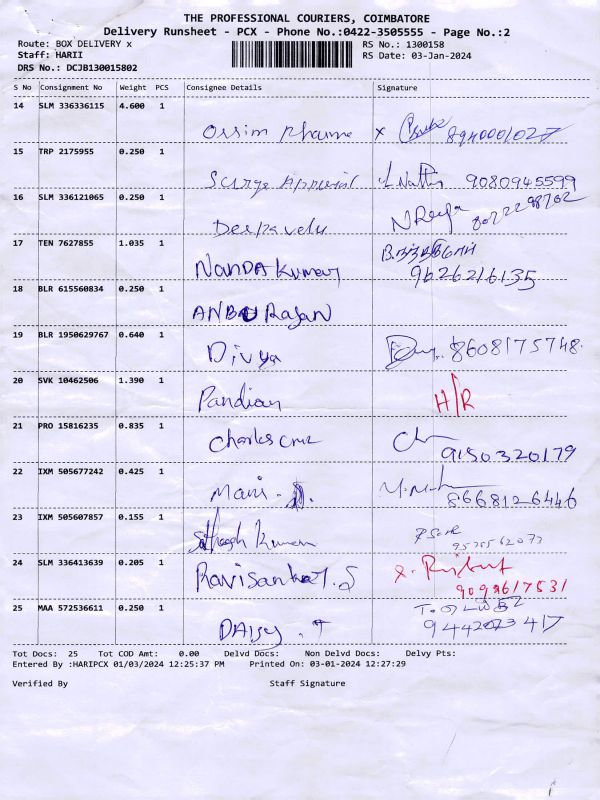 THE PROFESSIONAL COURIERS, COIMBATORE
Delivery Runsheet - PCX - Phone No.:0422-3505555 - Page No.:2
Route: BOX DELIVERY x RS No.: 1300158
Staff: HARII RS Date: 03-Jan-2024
DRS No.: DCJB130015802
S No Consignment No Weight PCS Consignee Details Signature
14 SLM 336336115 4.600 1
Ossim Pharma x 8940001027
15 TRP 2175955 0.250 1
Surya Apparial 9080945599
16 SLM 336121065 0.250 1
Deepavelu
17 TEN 7627855 1.035 1
Nanda Kumar 9626216135
18 BLR 615560834 0.250 1
ANBU Rajan
19 BLR 1950629767 0.640 1
Divya 8608175748
20 SVK 10462506 1.390 1
Pandian H/R
21 PRO 15816235 0.835 1
Charles Cruz 9150320179
22 IXM 505677242 0.425 1
Mani 8668126446
23 IXM 505607857 0.155 1
Kumar
24 SLM 336413639 0.205 1
Ravisankar.S 9092617531
25 MAA 572536611 0.250 1
DAisy.T 9442023417
Tot Docs: 25 Tot COD Amt: 0.00 Delvd Docs: Non Delvd Docs: Delvy Pts:
Entered By :HARIPCX 01/03/2024 12:25:37 PM Printed On: 03-01-2024 12:27:29
Verified By Staff Signature